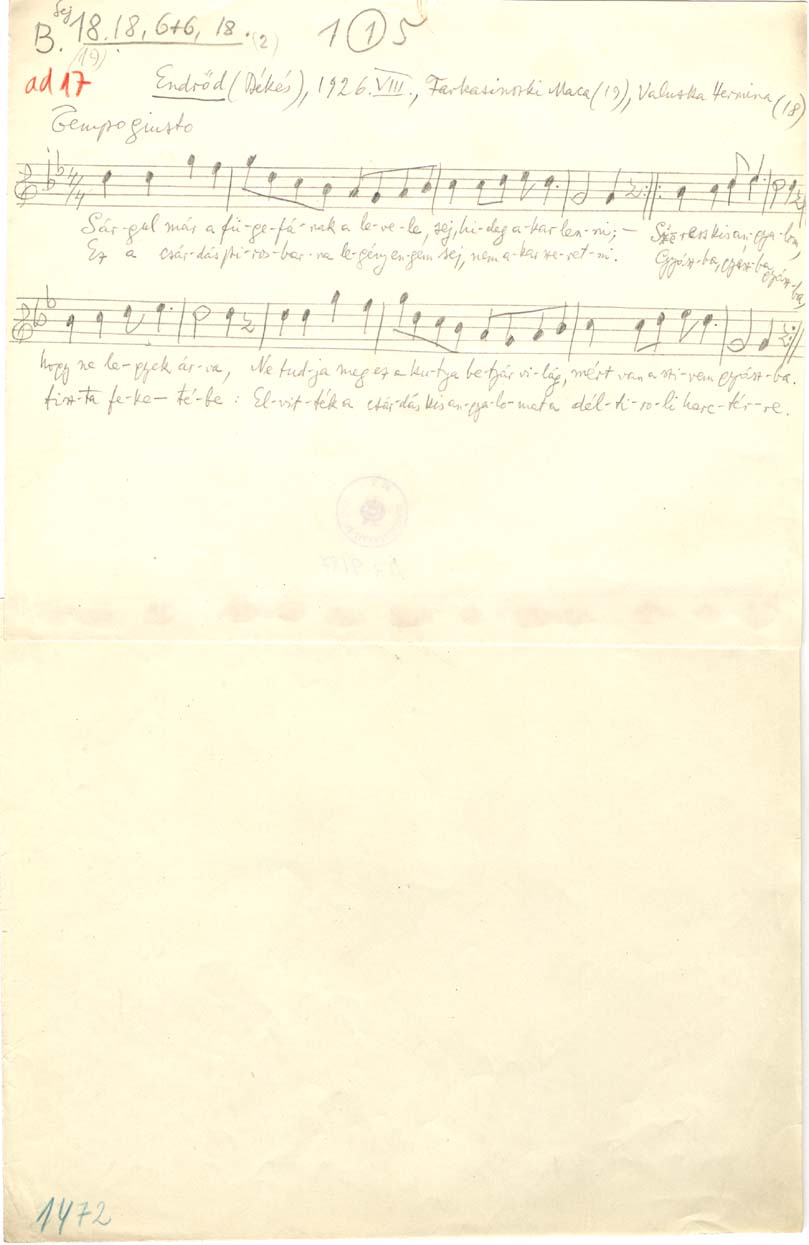 Sej
B. 18. 18, 6+6, 18. (2) 1 1 5
(19)
ad 17 Endrőd (Békés), 1926. VIII., Farkasinszki Maca (19), Valuska Hermina (18)
Tempo giusto
4/4
Sár-gul már a fü-ge-fá-nak a le-ve-le, sej, hi-deg a-kar len-ni; – kis an-gya-lom,
Ez a csár-dás pi-ros-bar-na le-gény en-gem sej, nem a-kar sze-ret-ni. Gyász-ba, gyász-ba, gyász-ba,
hogy ne le-gyek ár-va, Ne tud-ja meg ez a ku-tya be-tyár vi-lág, mért van a szi-vem gyász-ba.
tisz-ta fe-ke-té-be: El-vit-ték a csár-dás kis an-gya-lo-mat a dél-ti-ro-li harc-tér-re.
1472